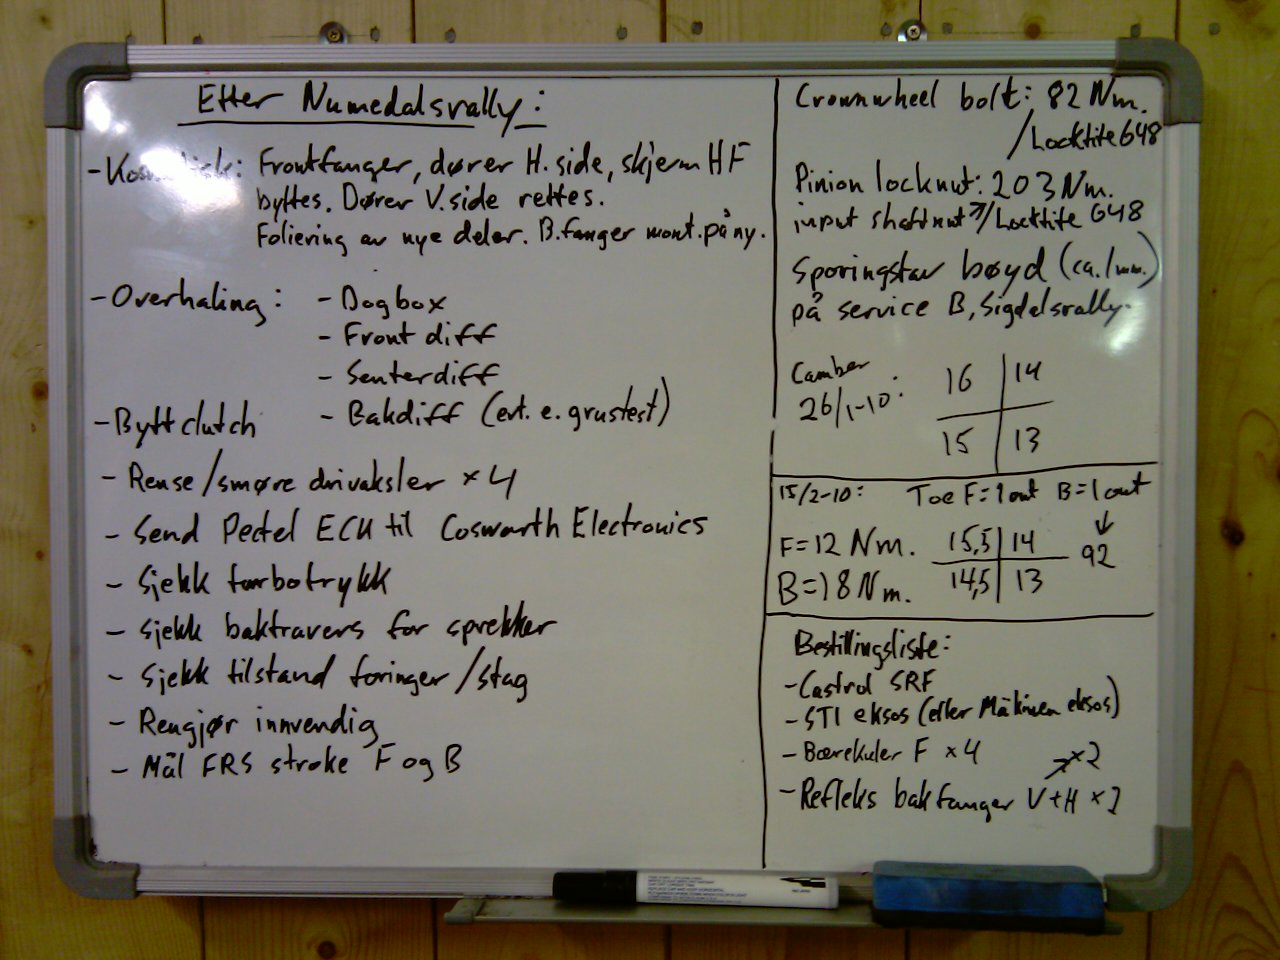 Etter Numedalsrally:
- Kosmetisk: Frontfanger, dører H. side, skjerm HF
byttes. Dører V. side rettes.
Foliering av nye deler. B.fanger mont. på ny.
- Overhaling: - Dogbox
- Front diff
- Senterdiff
- Bakdiff (evt. e. grustest)
- Bytt clutch
- Rense/smøre drivaksler x 4
- Send Pectel ECU til Cosworth Electronics
- Sjekk turbotrykk
- Sjekk baktravers for sprekker
- Sjekk tilstand foringer/stag
- Rengjør innvendig
- Mål FRS stroke F og B
Crownwheel bolt: 82 Nm.
/Locktite 648
Pinion locknut: 203 Nm.
input shaftnut ↗/Locktite 648
Sporingstav bøyd (ca. 1 mm.)
på service B, Sigdalsrally.
Camber
26/1-10:
16 14
15 13
15/2-10: Toe F=1 out B=1 out
↓
F=12 Nm. 15,5 14 92
B=18 Nm. 14,5 13
Bestillingsliste:
- Castrol SRF
- STI eksos (eller Mäkinen eksos)
- Bærekuler F x 4
↗ x2
- Refleks bakfanger V+H x2